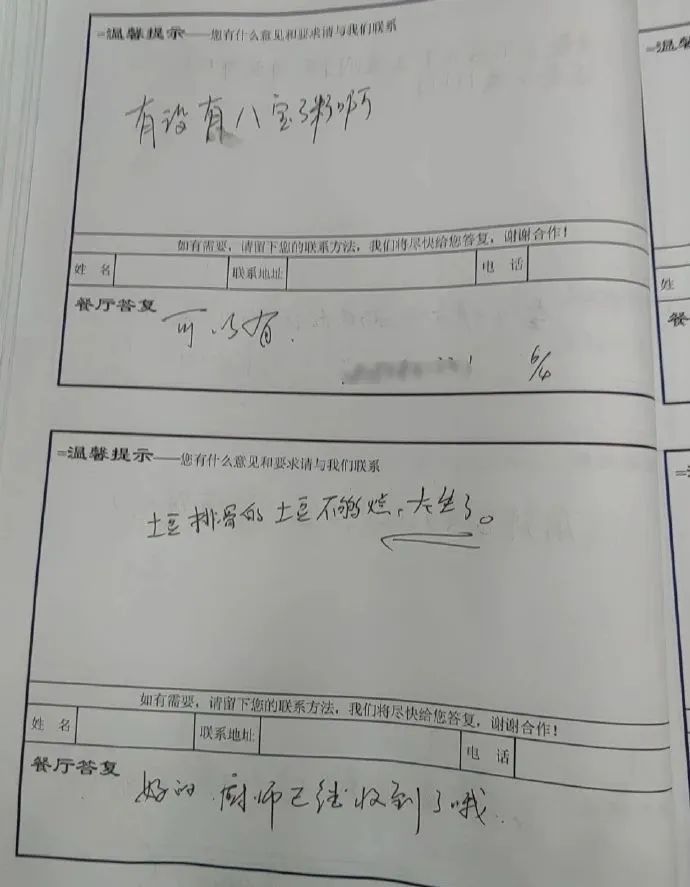 =温馨提示——您有什么意见和要求请与我们联系
有没有八宝粥啊
如有需要，请留下您的联系方法，我们将尽快给您答复，谢谢合作！
姓 名 联系地址 电 话
餐厅答复
可以有.
6/4
=温馨提示——您有什么意见和要求请与我们联系
土豆排骨的土豆不够烂，太生了。
如有需要，请留下您的联系方法，我们将尽快给您答复，谢谢合作！
姓 名 联系地址 电 话
餐厅答复
好的.厨师已经收到了哦.
=温馨
姓
餐